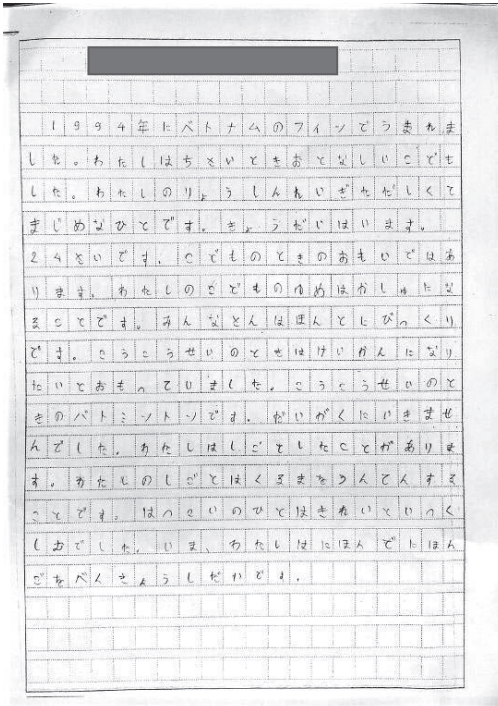 1994年にベトナムのフインでうまれま
した。わたしはちさいときおとなしいこども
した。わたしのりょうしんれいぎただしくて
まじめなひとです。きょうだいはいます。
24さいです。こどものときのおもいではあ
ります。わたしのこどものゆめはかしゅにな
ることです。みんなさんはほんとにびっくり
です。こうこうせいのときはけいかんになり
たいとおもっていました。こうこうせいのと
きのバトミントンです。だいがくにいきませ
んでした。わたしはしごとしたことがありま
す。わたしのしごとはくるまをうんてんする
ことです。はっさいのひとはきれいといっく
しおでした。いま、わたしはにほんでにほん
ごをべんきょうしだかです。